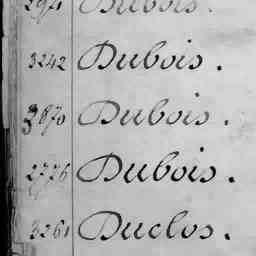 2971 Dubois.
3242 Dubois.
3870 Dubois.
2776 Dubois.
3261 Duclos.